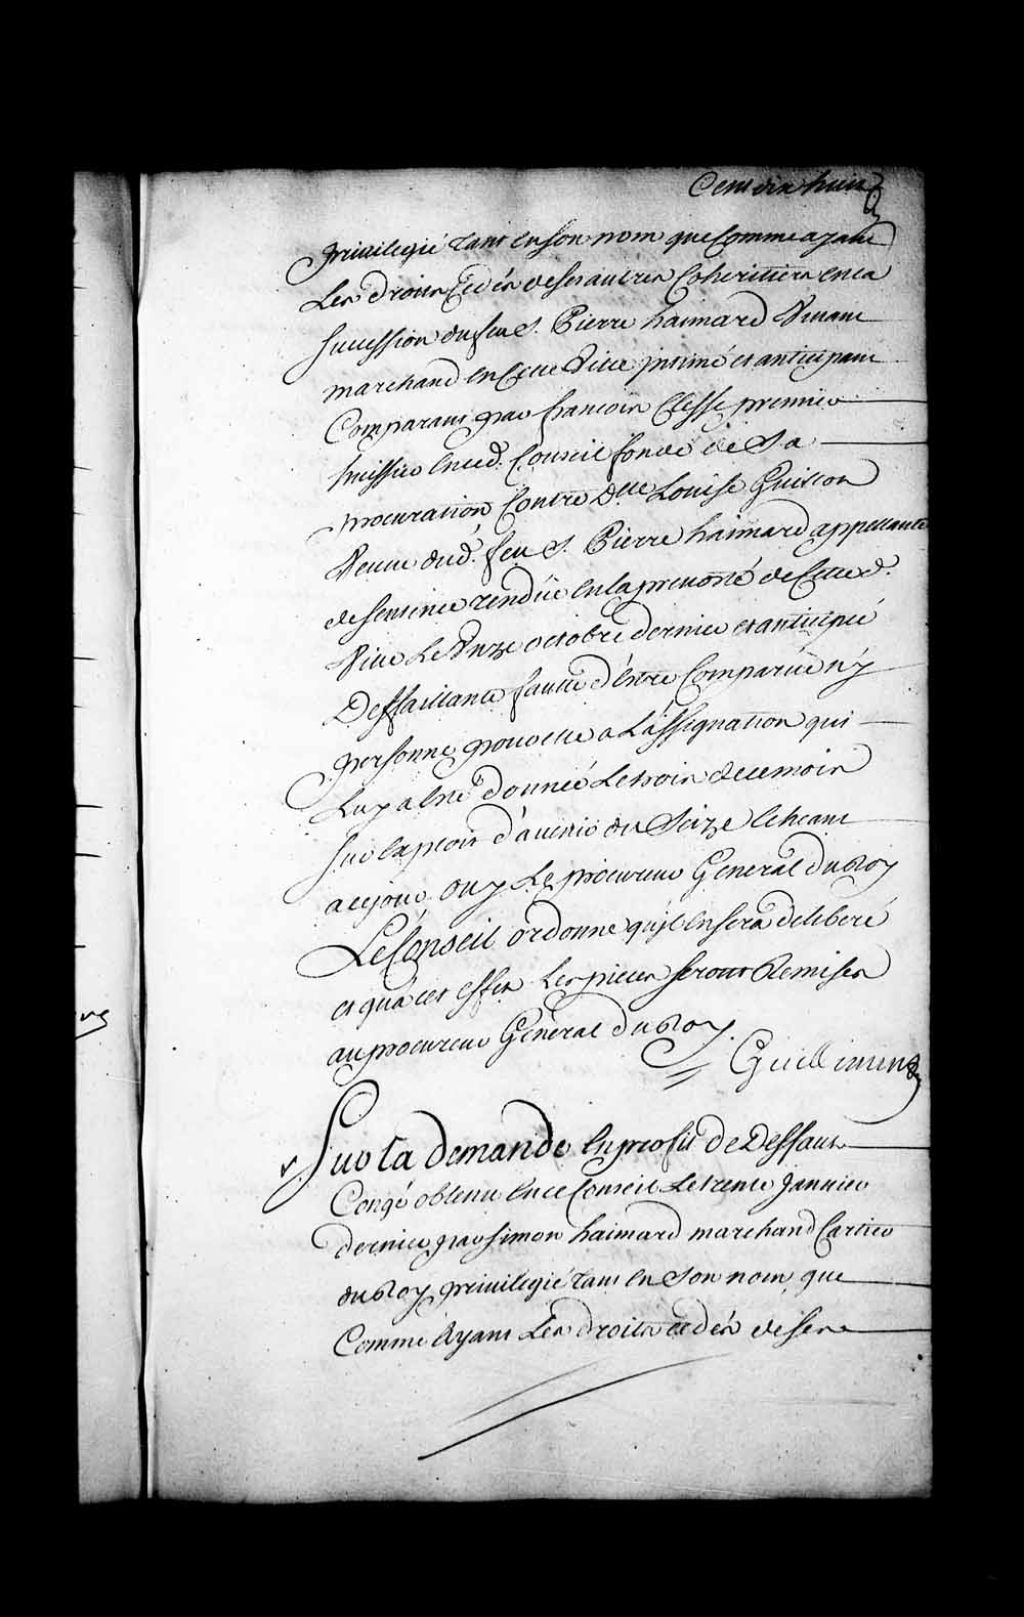 Cent dix huit
privilegié tant en son nom que Comme ayant
Les droits Cedés de ses autres Coheritiers en la
succession du feu S. Pierre haimard vivant
marchand en Cette Ville intimé et anticipant
Comparant par francois Clesse premier
huissier en ced. Conseil fondé de sa
procuration Contre Dlle Louise Guillon
Veuve dud. feu S. Pierre haimard appellante
de sentence rendüe en la prevosté de Cette d.
Ville Le Onze octobre dernier et anticipée
Deffaillante faute d'éstre Comparüe n'y
personne pour elle a L'assignation qui
Luy a esté donnée Le trois de ce mois
sur exploit d'avenir du Seize Echeant
a cejour. Ouy Le procureur General du Roy
Le Conseil ordonne qu'il en sera deliberé
et qu'a cet effet Les pieces seront Remises
au procureur General du Roy.
Guillimin
Sur la demande En profit de Deffaut
Congé obtenu en ce Conseil Le trente Janvier
dernier par simon haimard marchand Cartier
du Roy privilegié tant en Son nom que
Comme Ayant Les droits cedés de ses